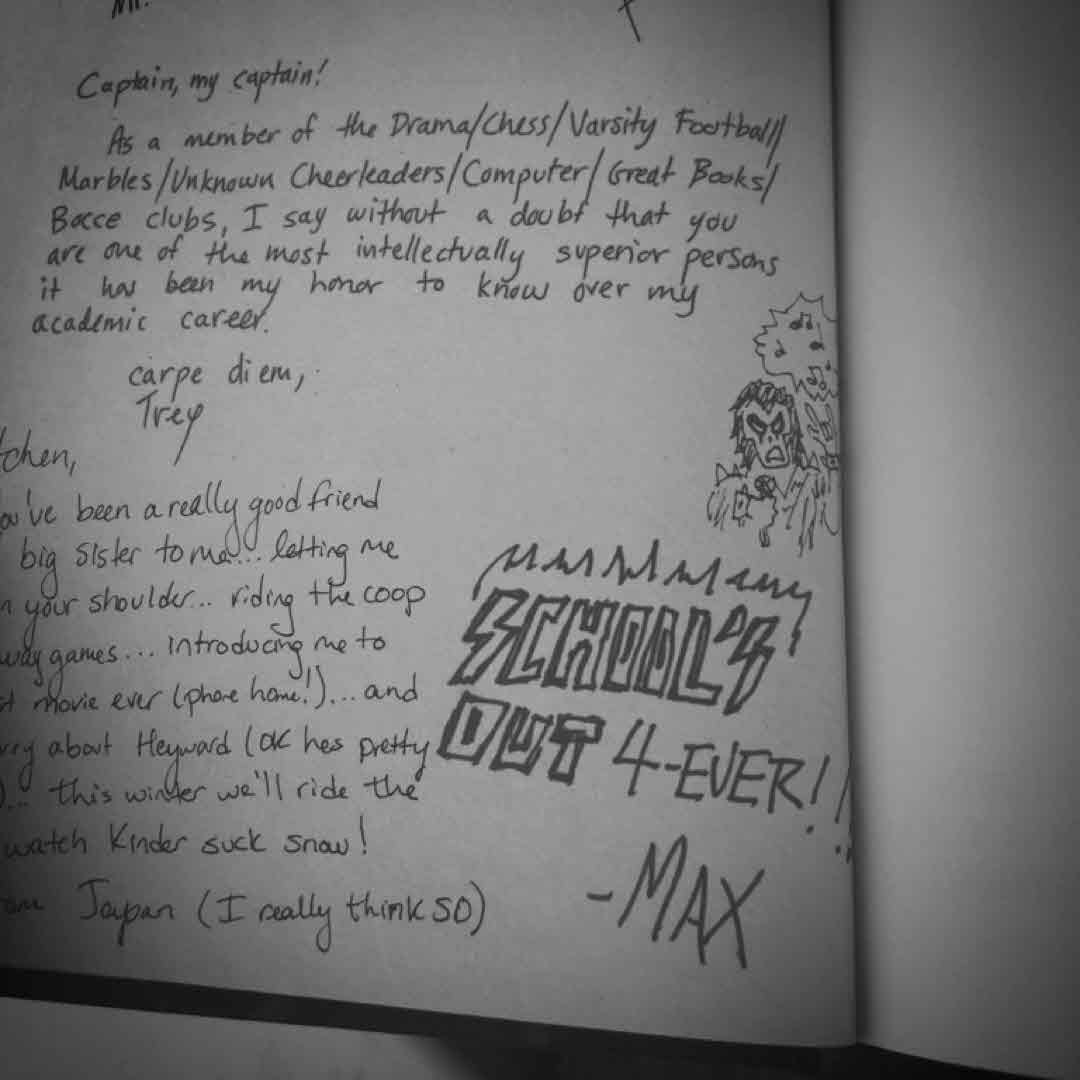 Mr.
Captain, my captain!
As a member of the Drama/Chess/Varsity Football/
Marbles/Unknown Cheerleaders/Computer/Great Books/
Bocce clubs, I say without a doubt that you
are one of the most intellectually superior persons
it has been my honor to know over my
academic career.
carpe diem,
Trey
tchen,
ou've been a really good friend
big sister to me... letting me
n your shoulder... riding the coop
way games... introducing me to
st movie ever (phone home!)... and
about Heyward (OK hes pretty
)... this winter we'll ride the
watch Kinder suck snow!
om Japan (I really think so)
SCHOOL'S
OUT 4-EVER!!
-MAX